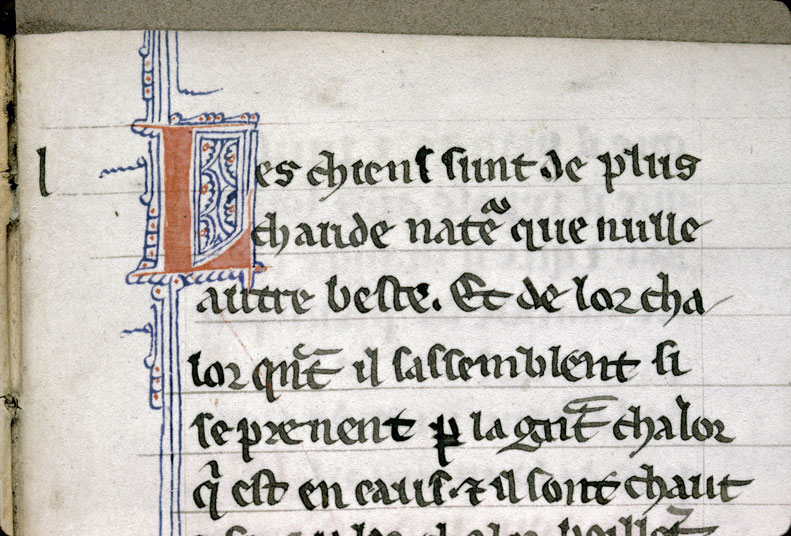 l Les chiens sunt de plus
chaude nate᷑ que nulle
autre beste. Et de lor cha
lor qñt il sassemblent si
se prenent ꝑ la gñt chalor
q̇ est en eaus. ⁊ il sont chaut